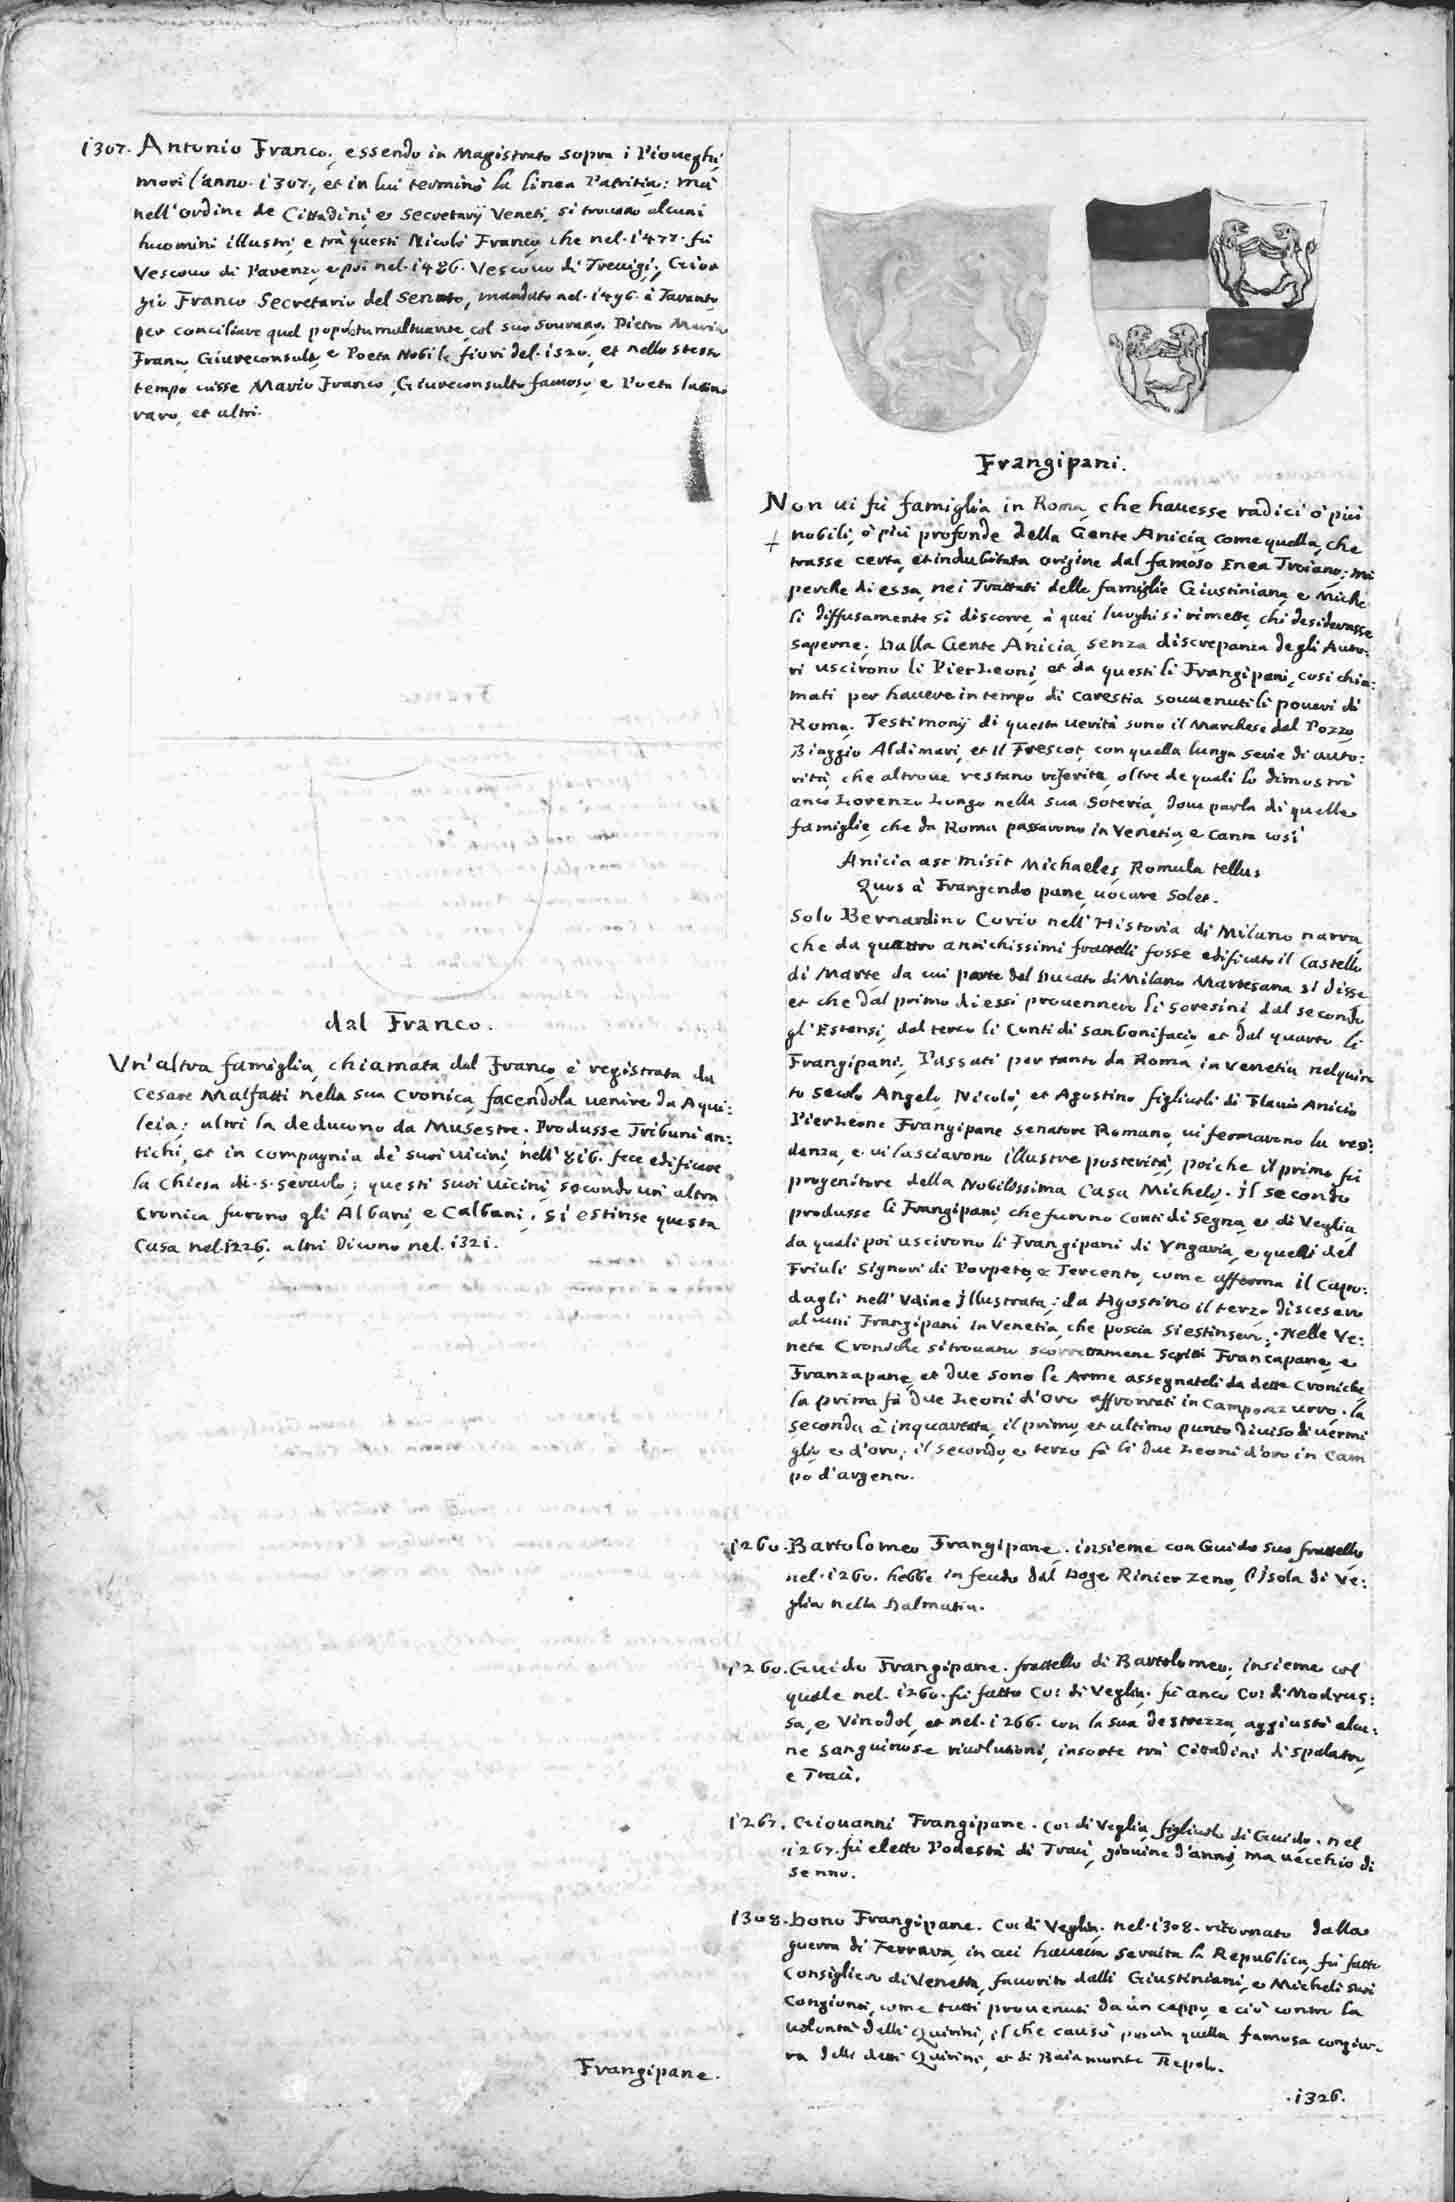 1307. Antonio Franco, essendo in Magistrato sopra i Pioueghi,
morì l'anno 1307, et in lui terminò la linea Patritia: mà
nell'ordine de Cittadini, e Secretarij Veneti, si trouano alcuni
huomini illustri, e trà questi Nicolò Franco, che nel 1477. fù
Vescouo di Parenzo, e poi nel 1486. Vescouo di Treuigi; Gior
gio Franco Secretario del Senato, mandato nel 1496. à Taranto,
per conciliare quel popolo tumultuante, col suo Sourano. Pietro Maria
Franco Giureconsulto, e Poeta Nobile fiorì del 1520. et nello stesso
tempo uisse Mario Franco, Giureconsulto famoso, e Poeta latino
raro, et altri.
dal Franco.
Vn'altra famiglia, chiamata dal Franco, è registrata da
Cesare Malfatti nella sua Cronica, facendola uenire da Aqui:
leia; altri la deducono da Musestre. Produsse Tribuni an:
tichi, et in compagnia de suoi uicini, nell' 816. fece edificare
la Chiesa di S. Seruolo; questi suoi uicini, secondo un'altra
Cronica furono gli Albani, e Calbani. Si estinse questa
Casa nel 1226. altri dicono nel 1321.
Frangipane.
Frangipani.
Non ui fù famiglia in Roma, che hauesse radici ò più
nobili, ò più profonde della Gente Anicia, come quella, che
trasse certa, et indubitata origine dal famoso Enea Troiano; mà
perche di essa, nei Trattati delle famiglie Giustiniana, e Miche
li diffusamente si discorre, à quei luoghi si rimette, chi desiderasse
saperne. Dalla Gente Anicia, senza discrepanza degli Auto:
ri uscirono li PierLeoni, et da questi li Frangipani, così chia:
mati per hauere in tempo di carestia souuenuti li poueri di
Roma. Testimonij di questa uerità sono il Marchese dal Pozzo,
Biaggio Aldimari, et il Frescot, con quella lunga serie di auto:
rità, che altroue restano riferite, oltre de quali lo dimostrò
anco Lorenzo Longo nella sua Soteria, doue parla di quelle
famiglie, che da Roma passarono in Venetia, e canta così
Anicia ast misit Michaeles, Romula tellus
Quos à Frangendo pane, uocare solet.
Solo Bernardino Corio nell'Historia di Milano narra,
che da quattro antichissimi fratelli fosse edificato il Castello
di Marte, da cui parte del Ducato di Milano Martesana si disse,
et che dal primo di essi prouennero li Soresini, dal secondo
gl'Estensi, dal terzo li Conti di San Bonifacio, et dal quarto li
Frangipani. Passati per tanto da Roma in Venetia nel quin
to secolo Angelo, Nicolò, et Agostino figliuoli di Flauio Anicio
PierLeone Frangipane Senatore Romano, ui fermarono la resi:
denza, e ui lasciarono illustre posterità, poiche il primo fù
progenitore della Nobilissima Casa Michele. il secondo
produsse li Frangipani, che furono Conti di Segna, et di Veglia,
da quali poi uscirono li Frangipani di Vngaria, e quelli del
Friuli Signori di Porpeto, e Tercento, come afferma il Capo:
dagli nell'Vdine illustrata; da Agostino il terzo discesero
alcuni Frangipani in Venetia, che poscia si estinsero. Nelle Ve:
nete Croniche si trouano scorrettamente scritti Francapane, e
Franzapane, et due sono le Arme assegnateli da dette Croniche,
la prima fà due Leoni d'oro affrontati in campo azurro. la
seconda è inquartata, il primo, et ultimo punto diuiso di uermi
glio, e d'oro; il secondo, e terzo fà li due Leoni d'oro in cam
po d'argento.
1260. Bartolomeo Frangipane. insieme con Guido suo fratello
nel 1260. hebbe in feudo dal Doge Rinier Zeno, l'Isola di Ve:
glia nella Dalmatia.
1260. Guido Frangipane. fratello di Bartolomeo, insieme col
quale nel 1260. fù fatto Co: di Veglia. fù anco Co: di Modrus:
sa, e Vinodol, et nel 1266. con la sua destrezza, aggiustò alcu:
ne sanguinose riuolutioni, insorte trà Cittadini di Spalatro,
e Traù.
1267. Giouanni Frangipane. Co: di Veglia, figliuolo di Guido. nel
1267. fù eletto Podestà di Traù, giouine d'anni, ma uecchio di
senno.
1308. Dono Frangipane. Co: di Veglia. nel 1308. ritornato dalla
guerra di Ferrara, in cui haueua seruita la Republica, fù fatto
Consigliero di Venetia, fauorito dalli Giustiniani, e Micheli suoi
Congionti, come tutti prouenuti da un ceppo, e ciò contro la
uolontà delli Quirini, il che causò poscia quella famosa congiu:
ra delli detti Quirini, et di Baiamonte Tiepolo.
1326.